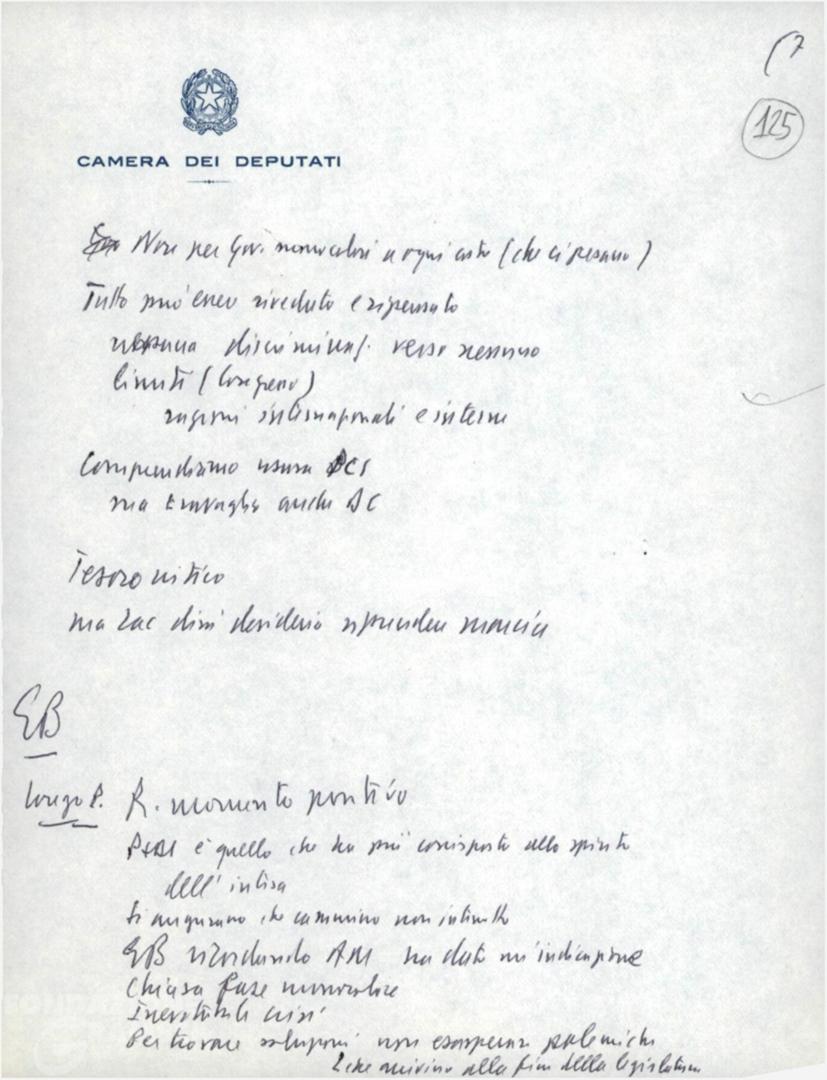 (7
125
CAMERA DEI DEPUTATI
Non per Gov. monocolori a ogni costo (che ci pesano)
Tutto può essere riveduto e ripensato
nessuna discriminaz. verso nessuno
limiti (Congresso)
ragioni internazionali e interne
Comprendiamo usura PCI
ma travaglio anche DC
Tesoro critico
ma Zac dirà desiderio riprendere marcia
EB
Longo P. R. momento positivo
PSDI è quello che ha più corrisposto allo spirito
dell'intesa
Si augurano che cammino non interrotto
EB ricordando AM ha dato un'indicazione
Chiusa fase monocolore
Inevitabile crisi
Per trovare soluzioni non esasperare polemiche
alla fine della legislatura